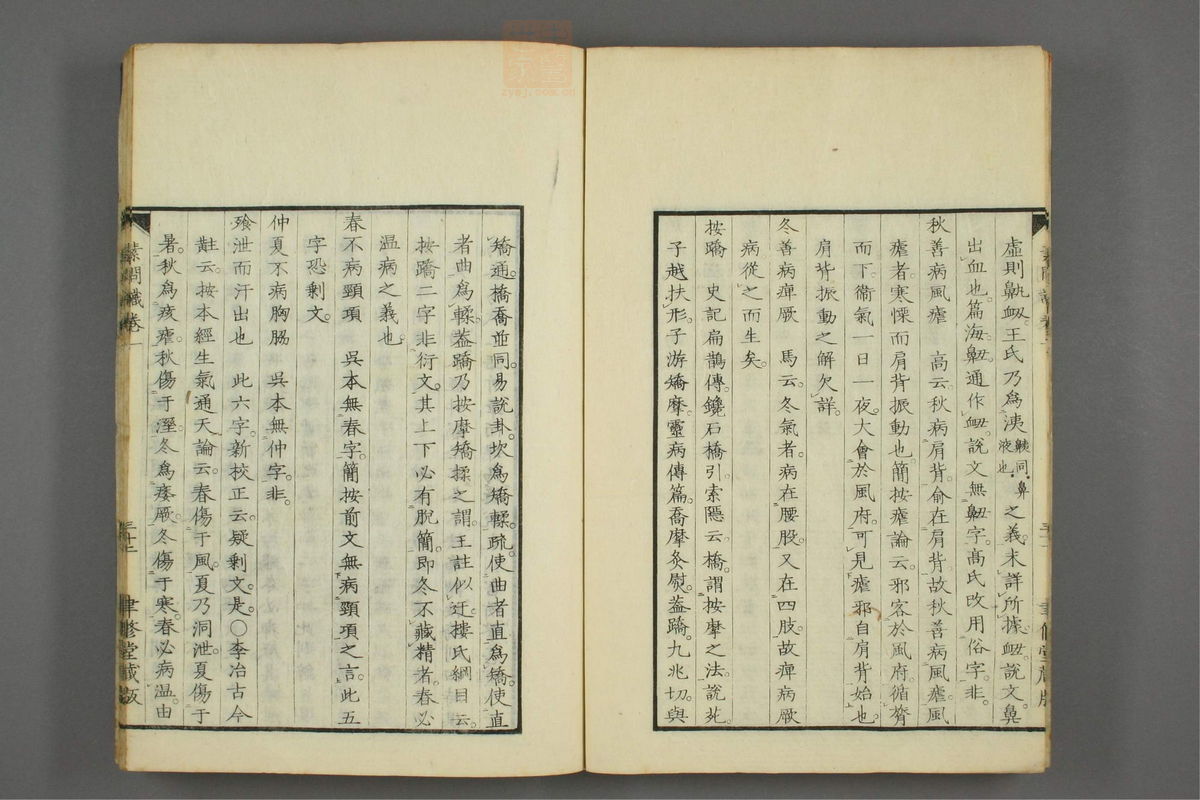 虛則鼽衂。王氏乃爲洟鼽同。鼻液也。之義。未詳所據。衂。說文。鼻
出血也。篇海。鼽通作衂。說文無鼽字。高氏改用俗字。非。
秋善病風瘧　高云。秋病肩背。俞在肩背。故秋善病風瘧。風
瘧者。寒慄而肩背振動也。簡按瘧論云。邪客於風府。循膂
而下。衞氣一日一夜。大會於風府。可見瘧邪自肩背始也。
肩背振動之解欠詳。
冬善病痺厥　馬云。冬氣者。病在腰股。又在四肢。故痺病厥
病從之而生矣。
按蹻　史記扁鵲傳。鑱石橋引。索隱云。橋謂按摩之法。說苑。
子越扶形。子游矯摩。靈病傳篇。喬摩灸熨。葢蹻。九兆切。與
矯通。橋喬並同。易說卦。坎爲矯輮。疏。使曲者直爲矯。使直
者曲爲輮。葢蹻乃按摩矯揉之謂。王註似迂。樓氏綱目云。
按蹻二字非衍文。其上下必有脫簡。即冬不藏精者。春必
温病之義也。
春不病頸項　吳本無春字。簡按前文無病頸項之言。此五
字恐剩文。
仲夏不病胸脇　吳本無仲字。非。
飱泄而汗出也　此六字。新校正云。疑剩文。是。○李冶古今
黈云。按本經生氣通天論云。春傷于風。夏乃洞泄。夏傷于
暑。秋爲痎瘧。秋傷于溼。冬爲痿厥。冬傷于寒。春必病温。由
素問識卷一
三十二
聿修堂藏版